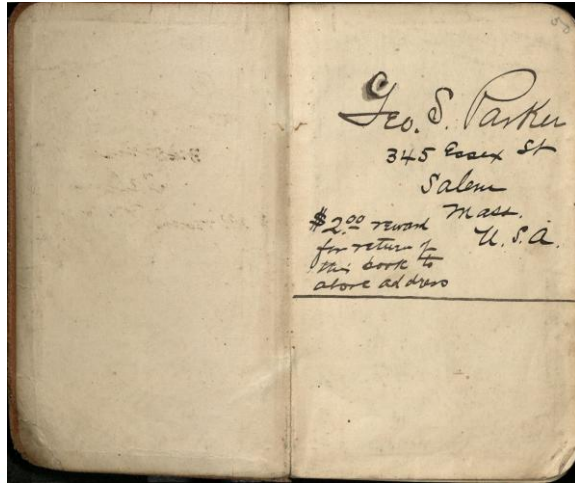 50
Geo. S. Parker
345 Essex St
Salem
Mass.
U.S.A.
$2.00 reward
for return of
this book to
above address